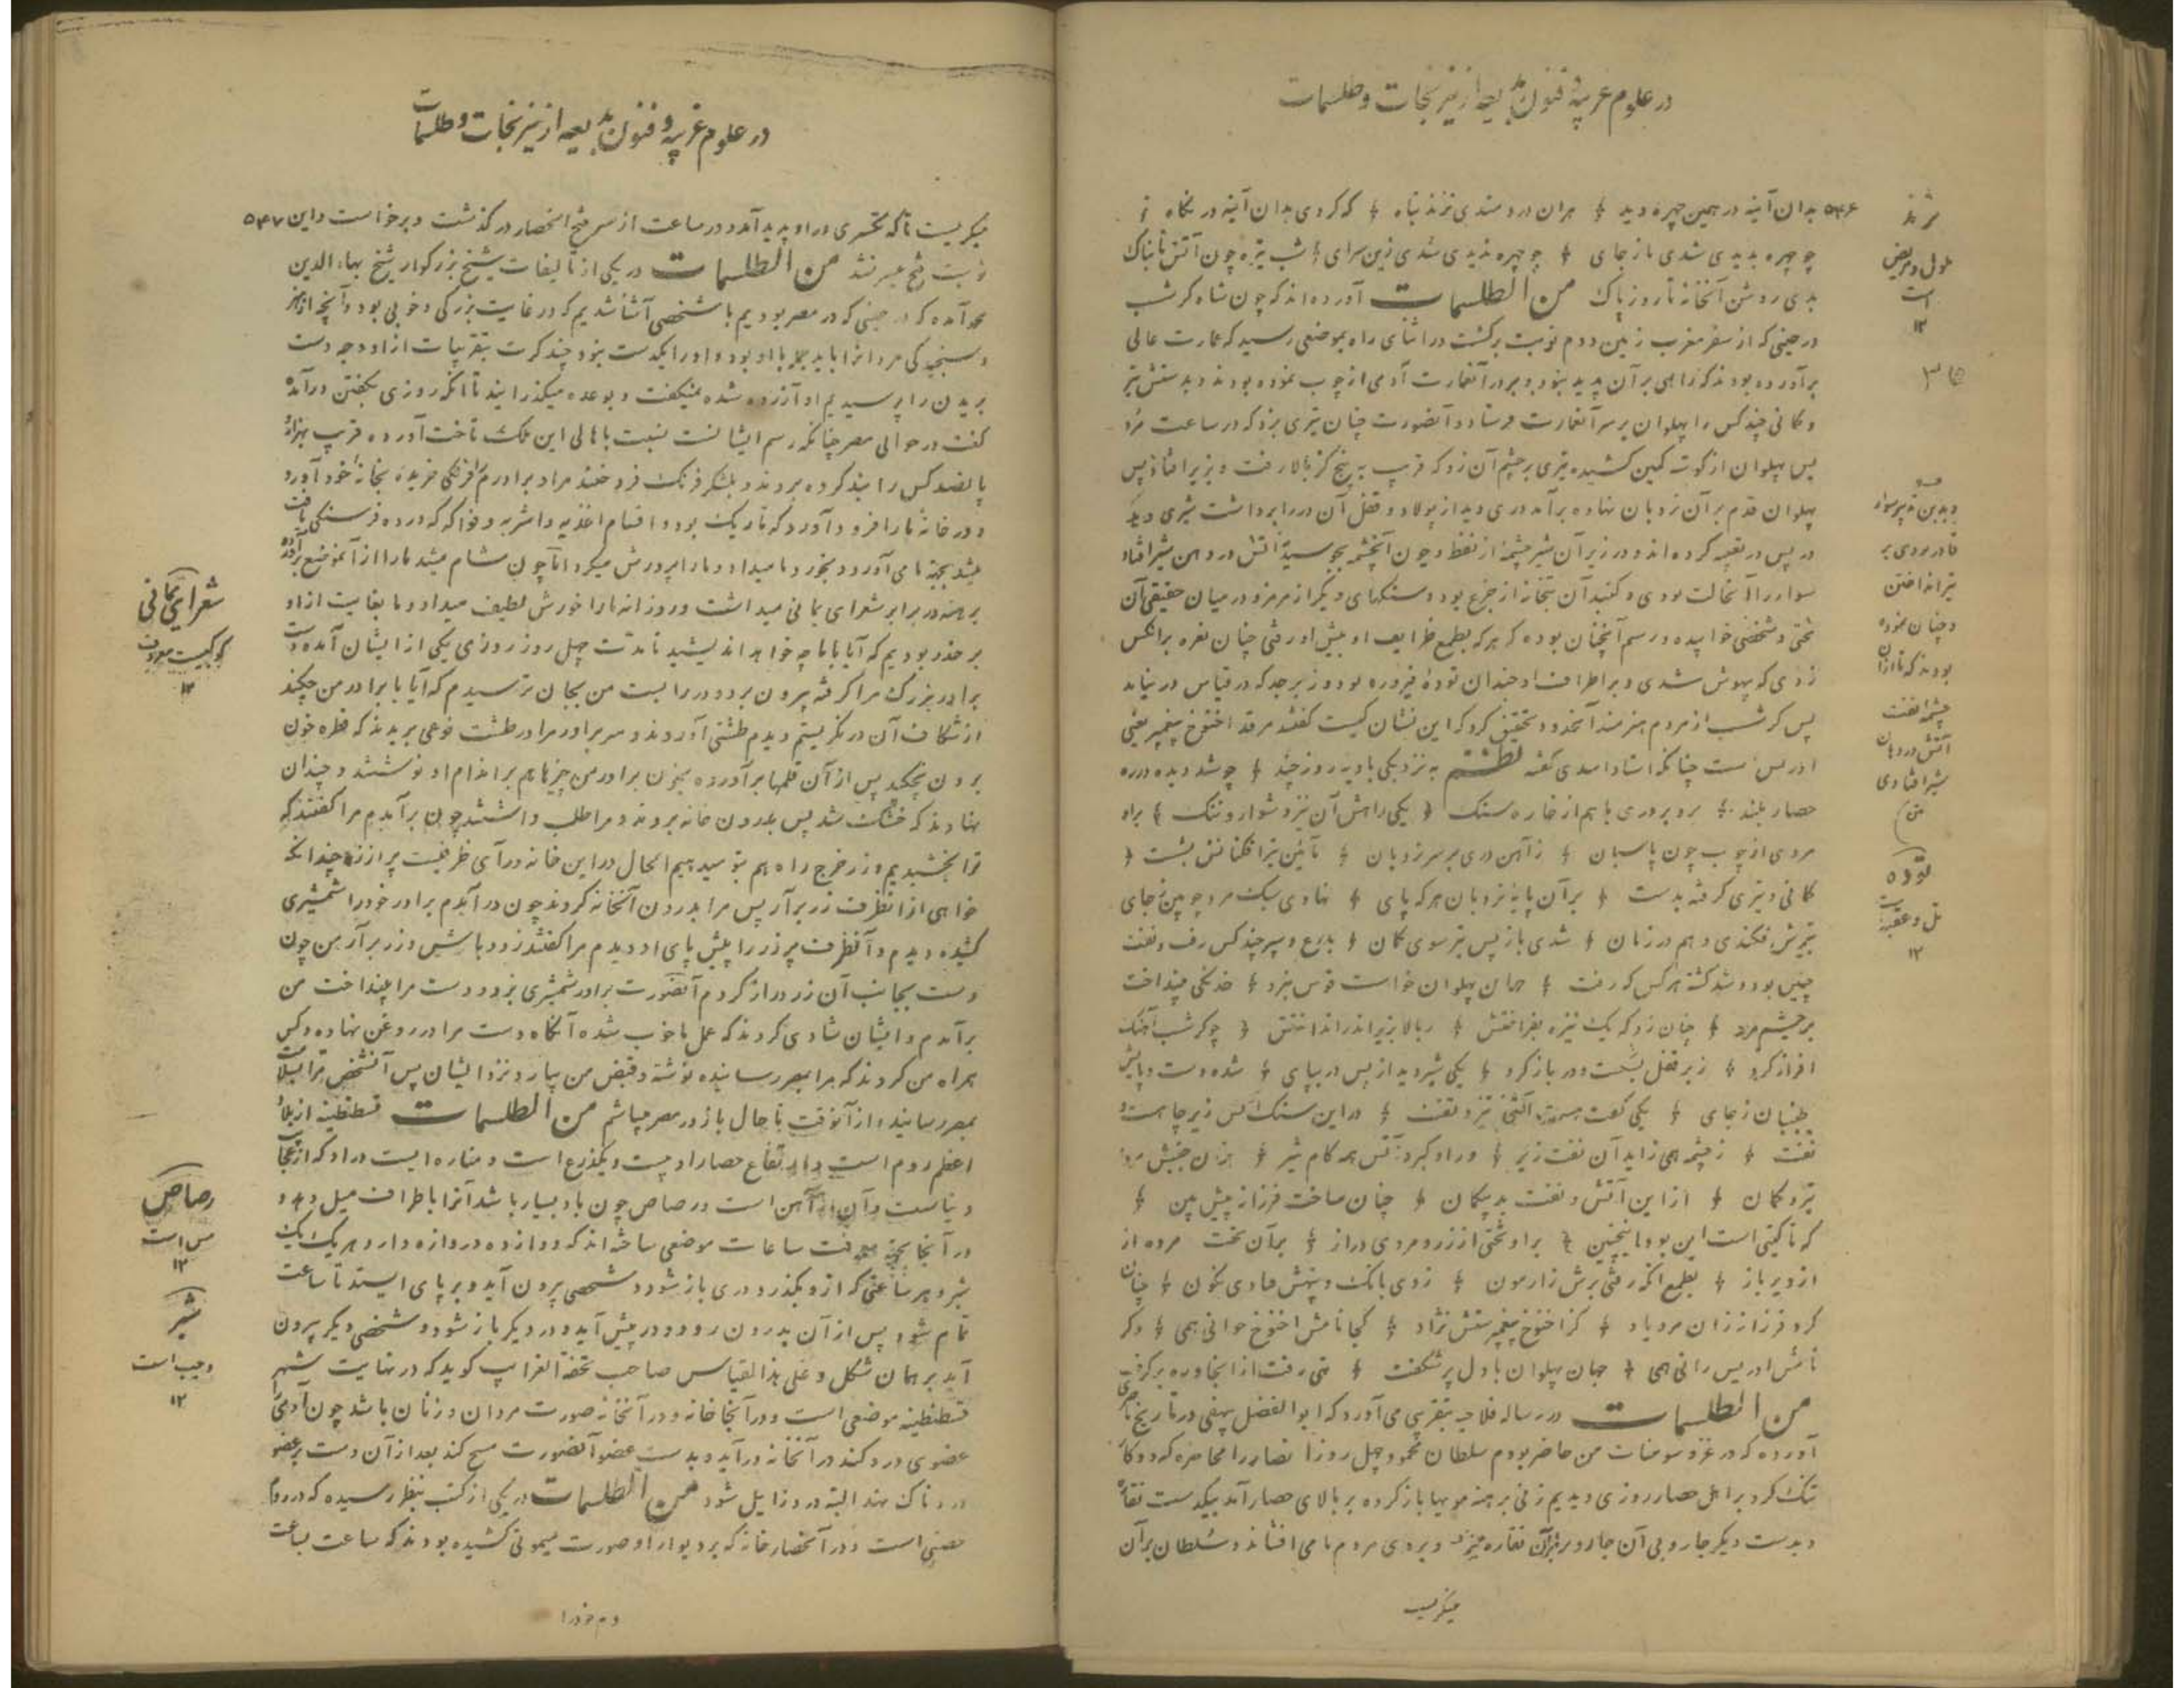 در علوم غریبه و فنون بدیعه از نیرنجات و طلسمات
۵۴۶ بدان آینه در همین چهره دید ؛ هران دردمندی نژند تباه ؛ که کردی بدان آینه در نگاه ؛
چو چهره بدیدی شدی باز جای ؛ چو چهره ندیدی شدی زین سرای ؛ شب تیره چون آتش تابناک
بدی روشن آنخانه تا روز پاک من الطلسمات آورده اند که چون شاه کرشسب
در حینی که از سفر مغرب زمین دوم نوبت برگشت در اثنای راه بموضعی رسید که عمارت عالی
برآورده بودند که راهی بر آن پدید نبود و بر در آنعمارت آدمی از چوب نموده بودند و بدستش تیر
و کمانی چند کس را پهلوان بر سر آنعمارت فرستاد و آنصورت چنان تیری بزد که در ساعت مرد
پس پهلوان از گوشه کمین کشیده تیری بر چشم آن زد که قریب به پنج گز بالا رفت و بزیر افتاد پس
پهلوان قدم بر آن نردبان نهاده برآمد دری دید از پولاد و قفل آن در را برداشت شیری دید
در پس در تعبیه کرده اند و در زیر آن شیر چشمهٔ از نفط و چون آنچشمه بجوسیدی آتش در دهن شیر افتاد
سوار را آنحالت بودی و گنبد آن بتخانه از جزع بود و سنگهای دیگر از مرمر و در میان حقیقی آن
تختی و شخصی خوابیده و رسم آنچنان بوده که هر که بطمع ظرایف او پیش او رفتی چنان نعره بر آنکس
زدی که بیهوش شدی و بر اطراف او چندان تودهٔ فیروزه بود و زبرجد که در قیاس در نیاید
پس کرشسب از مردم هنرمند آنحدود تحقیق کرد که این نشان کیست گفتند مرقد اخنوخ پیغمبر یعنی
ادریس است چنانکه استاد اسدی گفته نظم به نزدیکی بادیه روز چند ؛ چو شد دیده در ره
حصار بلند ؛ برو بروری با هم از خاره سنگ ؛ یکی راهش آن نیز دشوار و تنگ ؛ براو
مردی از چوب چون پاسبان ؛ ز آهن دری بر سر نردبان ؛
کمانی و تیری گرفته بدست ؛ بر آن پایهٔ نردبان هر که پای ؛ نهادی سبک مرد چوبین ز جای
بتیرش فکندی و هم در زمان ؛ شدی باز پس تیر سوی کمان ؛ بدرع و سپر چند کس رفت و تفت
چنین بود و شد کشته هر کس که رفت ؛ جهان پهلوان خواست قوس نبرد ؛ خدنگی بینداخت
بر چشم مرد ؛ چنان زد که یک نیزه بفراختش ؛ ز بالا بزیر اندر انداختش ؛ چو کرشسب آهنگ
افراز کرد ؛ زبر قفل بشکست و در باز کرد ؛ یکی شیر دید از پس در بپای ؛ شده دست و پایش
جنبان ز جای ؛ یکی گفت تیز و تفت ؛ در این سنگ کس زیر چاهست
نفت ؛ ز چشمه همی زاید آن نفت زیر ؛ وز او گیرد آتش همه کام شیر ؛ بدان جنبش مرد
تیر و کمان ؛ از این آتش و نفت بد بیگمان ؛ چنان ساخت فرزانه پیش بین ؛
که تا گیتی است این بود اینچنین ؛ براو تختی از زر و مردی دراز ؛ برآن تخت مرده از
او دیر باز ؛ بطمع آنکه رفتی برش ز آزمون ؛ زدی بانک و بیهش فتادی نگون ؛ چنان
کرد فرزانه زان مرد یاد ؛ کز اخنوخ پیغمبرستش نژاد ؛ کجا نامش اخنوخ خوانی همی ؛ دگر
نامش ادریس رانی همی ؛ جهان پهلوان با دل پر شگفت ؛ همی رفت از آنجا و ره برگرفت
من الطلسمات در رساله فلاحیه بتقریبی می آورد که ابوالفضل بیهقی در تاریخ ناصری
آورده که در غزو سومنات من حاضر بودم سلطان محمود چهل روز انحصار را محاصره کرد و کار
تنک کرد بر اهل حصار روزی دیدیم زنی برهنه مویها باز کرده بر بالای حصار آمد بیکدست نقاره
و بدست دیگر جاروبی آن جاروب بر آن نقاره میزد و بر روی مردم ما می افشاند و سلطان بر آن
میگریست
نژند
ملول و مریض
است
۱۲
قادر بودی بر
تیر انداختن
و چنان نموده
بودند که تا از آن
چشمه نفت
آتش در دهان
شیر افتادی
توده
تل و عقبه
۱۲
در علوم غریبه و فنون بدیعه از نیرنجات و طلسمات
میگریست تا آنکه تکسری در او پدید آمد و در ساعت از سر فتح انحصار درگذشت و برخاست و این ۵۴۷
نوبت فتح میسر نشد من الطلسمات در یکی از تالیفات شیخ بزرگوار شیخ بهاء الدین
محمد آمده که در حینی که در مصر بودیم با شخصی آشنا شدیم که در غایت بزرگی و خوبی بود و آنچه از هنر
و سنجیدگی مردانرا باید همه با او بود و او را یکدست نبود چند کرت بتقریبات از او وجه دست
بریدن را پرسیدیم او آزرده شده نمیگفت و بوعده میگذرانید تا آنکه روزی بگفتن درآمد
گفت در حوالی مصر چنانکه رسم ایشانست نسبت باهالی این ملک تاخت آورده قریب بهزار
پانصد کس را بند کرده بردند و بلشکر فرنک فروختند مرا و برادرم را فرنگی خریده بخانه خود آورد
و در خانهٔ ما را فرود آورد که تاریک بود و اقسام اغذیه و اشربه و فواکه که در ده فرسنگی یافت
میشد بجهة ما می آورد و بخورد ما میداد و ما را پرورش میکرد اما چون شام میشد ما را از آنموضع برآورده
برهنه در برابر شعرای یمانی میداشت و روزانه ما را خورش لطیف میداد و ما بغایت از او
بر حذر بودیم که آیا با ما چه خواهد اندیشید تا مدت چهل روز روزی یکی از ایشان آمده دست
برادر بزرگ مرا گرفته بیرون برد و در را بست من بجان ترسیدم که آیا با برادر من چکند
از شکاف آن در نگریستم دیدم طشتی آوردند و سر برادر مرا در طشت نوعی بریدند که قطره خون
برون نچکید پس از آن قلمها برآورده بخون برادر من چیزها هم بر اندام او نوشتند و چندان
بنهادند که خشک شد پس بدرون خانه بردند و مرا طلب داشتند چون برآمدم مرا گفتند که
ترا بخشیدیم و زر خرج راه هم بتو میدهیم الحال در این خانه درآی ظرفیست پر از زر چندانکه
خواهی از آنظرف زر برآر پس مرا بدرون آنخانه کردند چون درآمدم برادر خود را شمشیری
کشیده دیدم و آنظرف پر زر را پیش پای او دیدم مرا گفتند زود باش و زر برآر من چون
دست بجانب آن زر دراز کردم آنصورت برادر شمشیری بزد و دست مرا بینداخت من
برآمدم و ایشان شادی کردند که عمل ما خوب شده آنگاه دست مرا در روغن نهاده و کس
همراه من کردند که مرا بمصر رسانیده نوشته و قبض من بیارد نزد ایشان پس آنشخص مرا بسلامت
بمصر رسانید و از آنوقت تا حال باز در مصر میباشم من الطلسمات قسطنطنیه از بلاد
اعظم روم است و ارتفاع حصار او بیست و یکذرع است و مناره ایست در او که از عجایب
دنیاست و آن از آهن است و رصاص چون باد بسیار باشد آنرا باطراف میل دهد و
در آنجا بجهة معرفت ساعات موضعی ساخته اند که دوازده دروازه دارد هر یک یک
شبر و هر ساعتی که از و بگذرد دری باز شود و شخصی بیرون آید و بر پای ایستد تا ساعت
تمام شود پس از آن بدرون رود و در پیش آید و در دیگر باز شود و شخصی دیگر بیرون
آید بر همان شکل و علی هذا القیاس صاحب تحفة الغرایب گوید که در نهایت شهر
قسطنطنیه موضعی است و در آنجا خانه و در آنخانه صورت مردان و زنان باشد چون آدمی را
عضوی درد کند در آنخانه درآید و بدست عضو آنصورت مسح کند بعد از آن دست بر عضو
دردناک نهد البته درد زایل شود من الطلسمات در یکی از کتب بنظر رسیده که در روم
حصنی است و در آنحصار خانه که بر دیوار او صورت میمونی کشیده بودند که ساعت بساعت
دم خود را
شعرای یمانی
کوکبیست معروف
۱۲
رصاص
مس است
۱۲
شبر
وجب است
۱۲